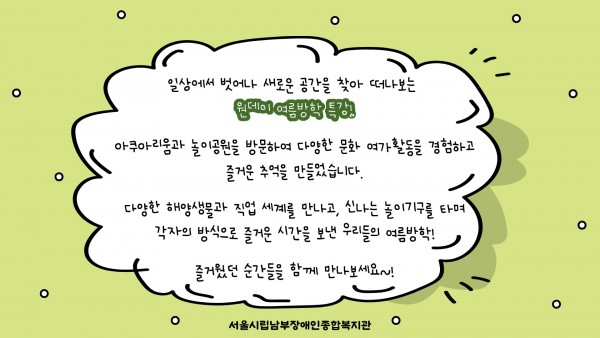 일상에서 벗어나 새로운 공간을 찾아 떠나보는
원데이 여름방학 특강!
아쿠아리움과 놀이공원을 방문하여 다양한 문화 여가활동을 경험하고
즐거운 추억을 만들었습니다.
다양한 해양생물과 직업 세계를 만나고, 신나는 놀이기구를 타며
각자의 방식으로 즐거운 시간을 보낸 우리들의 여름방학!
즐거웠던 순간들을 함께 만나보세요~!
서울시립남부장애인종합복지관